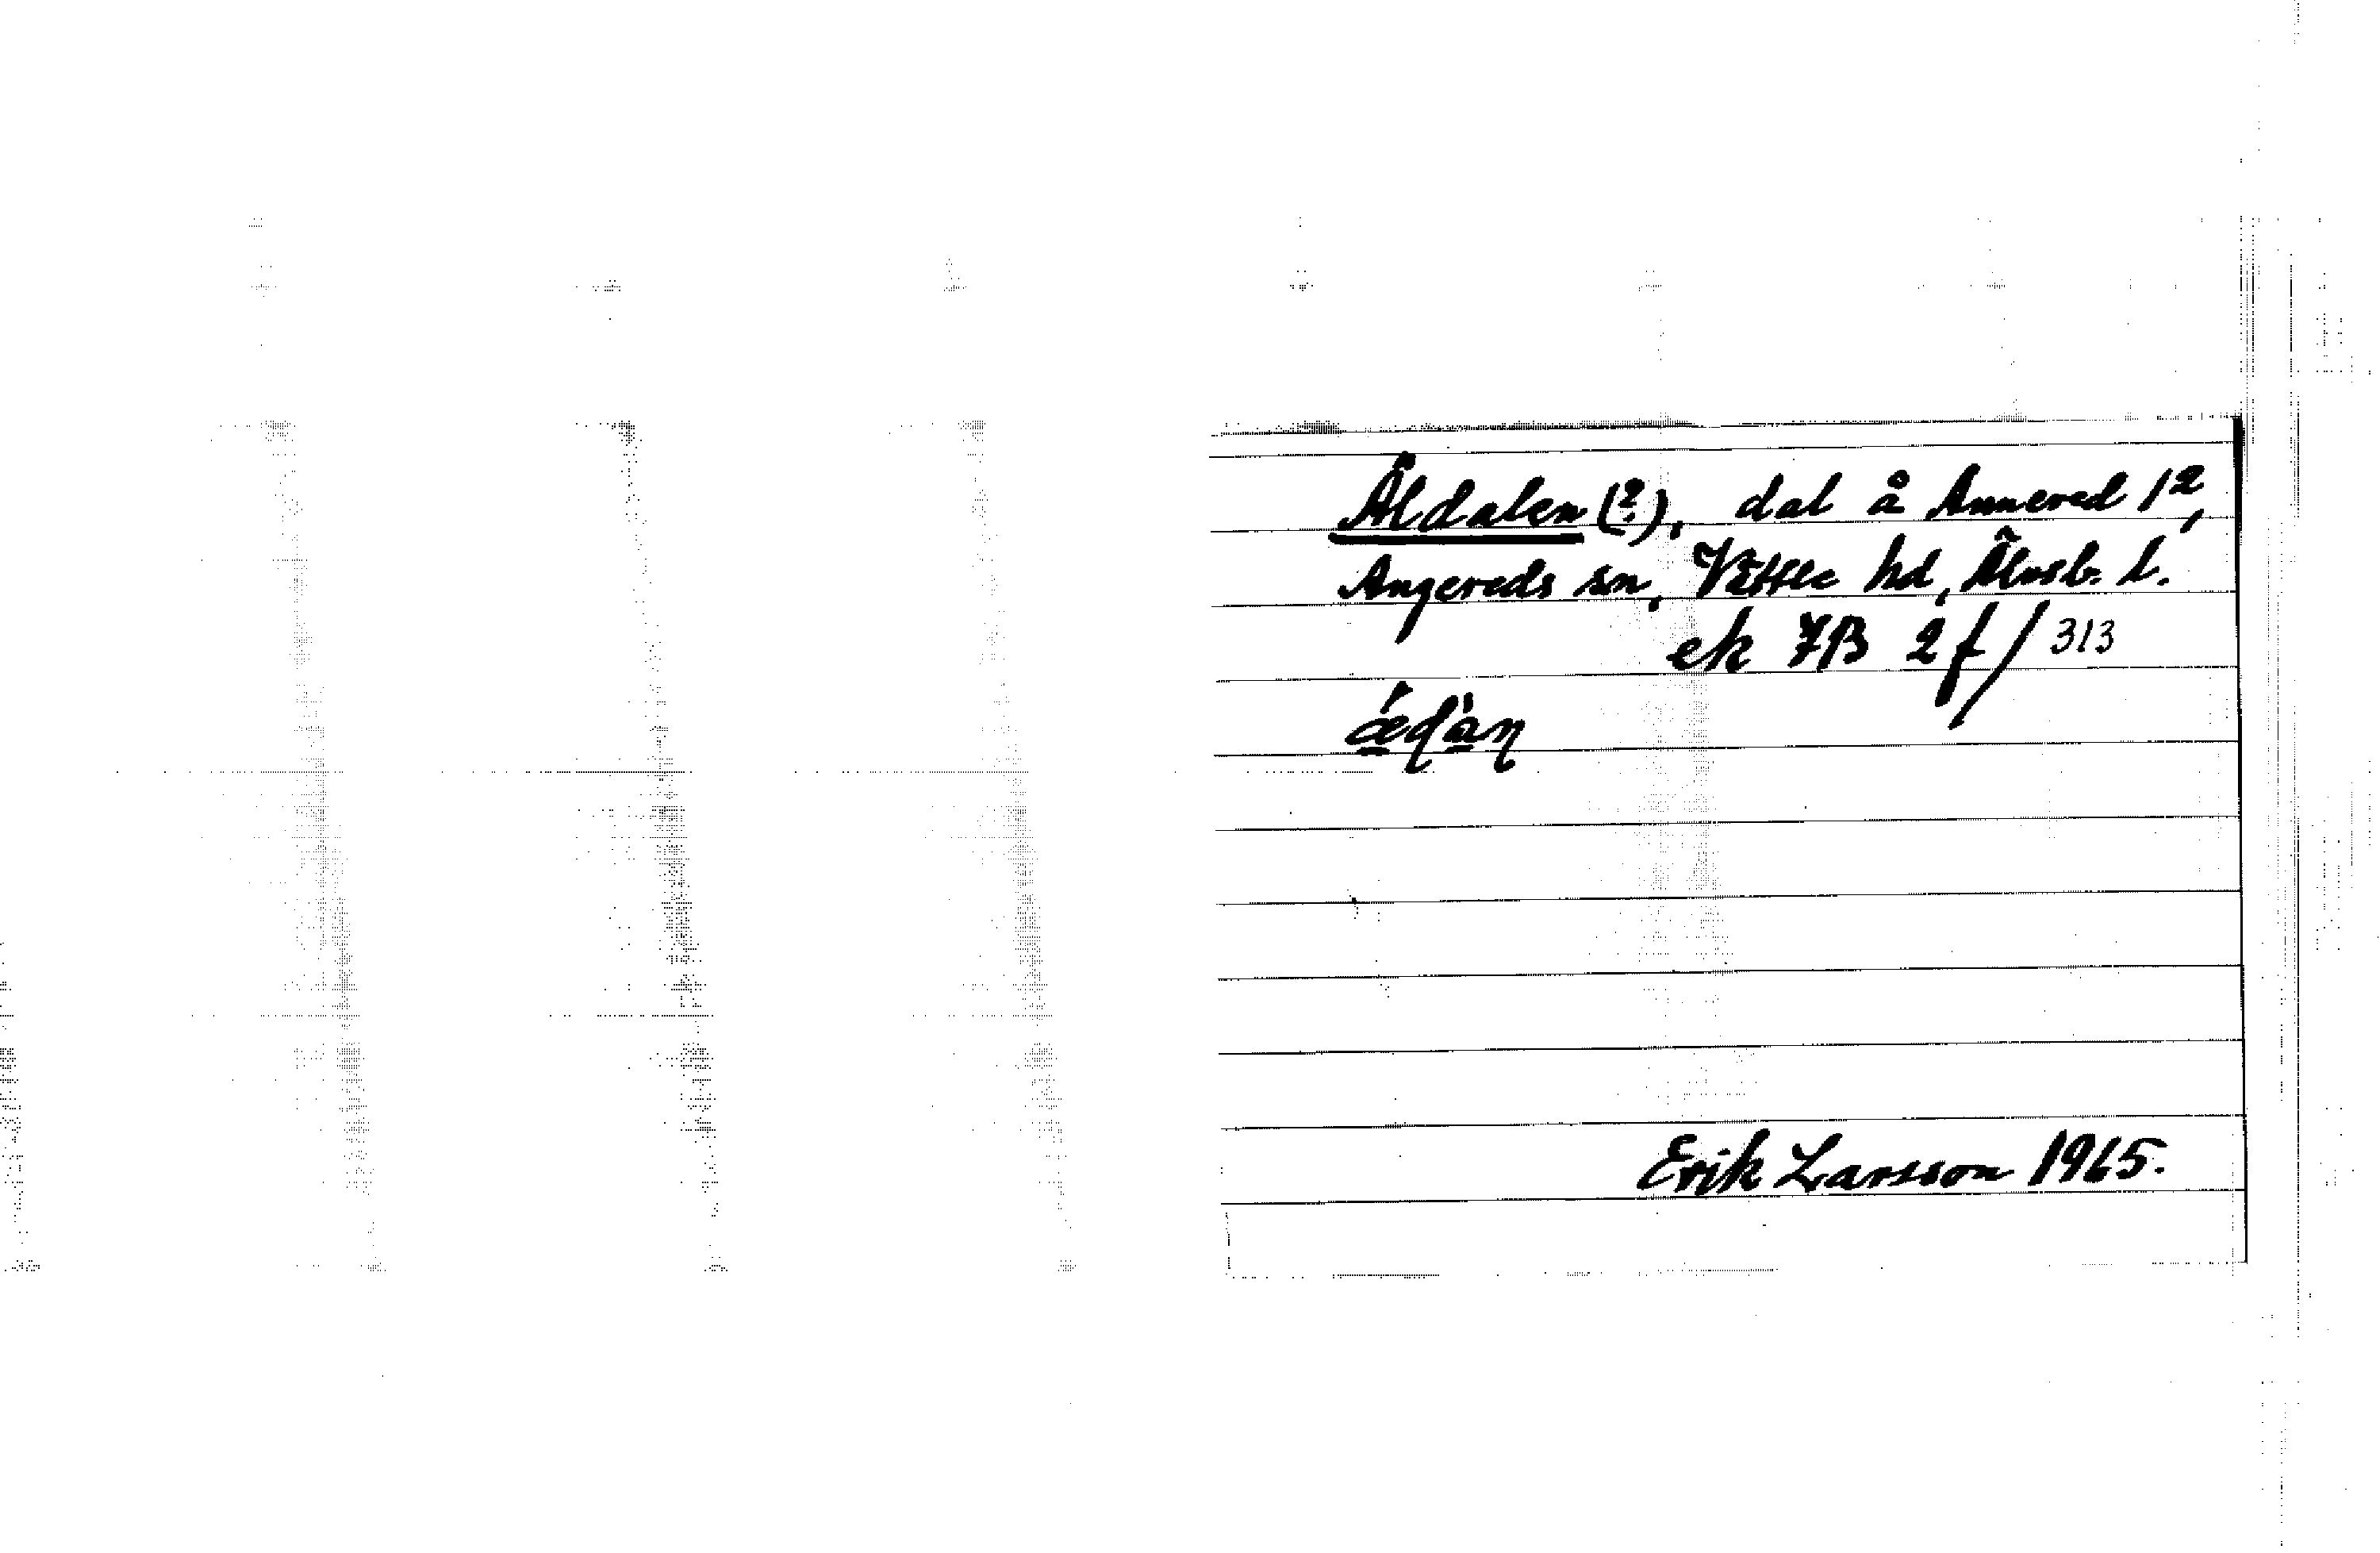 Äldalen (?), dal å Annered 1²,
Angereds sn, Vättle hd, Älvsb. l.
ek 7B 2f/313
Erik Larsson 1965.